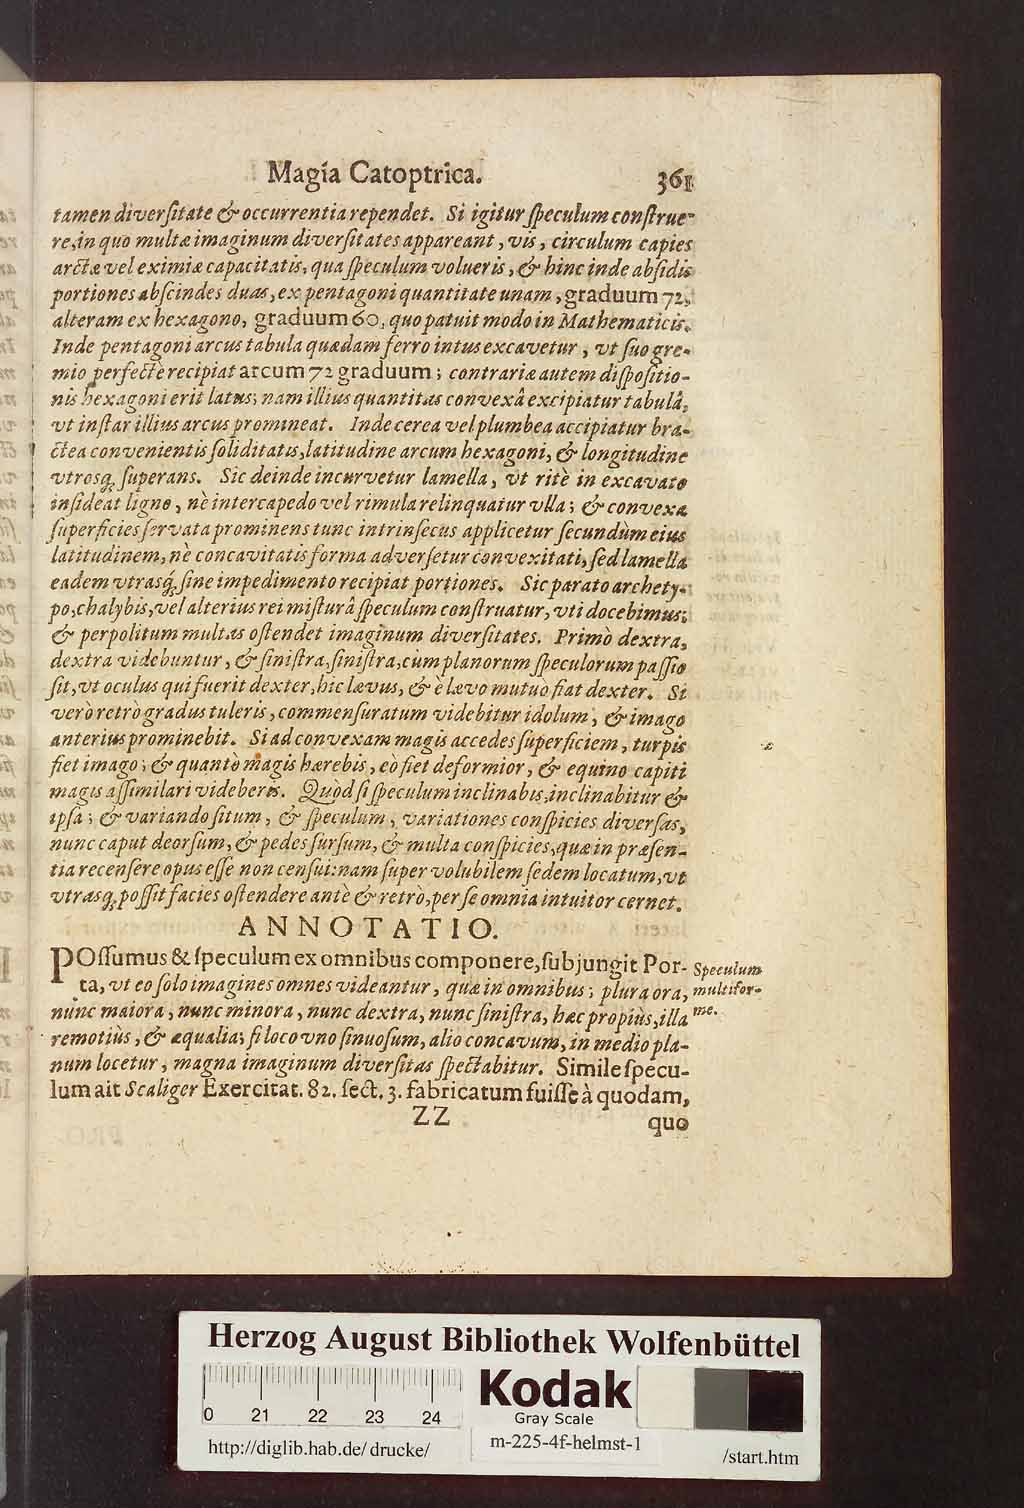 Magia Catoptrica. 361
tamen diverſitate & occurrentia rependet. Si igitur ſpeculum conſtrue-
re, in quo multæ imaginum diverſitates appareant, vis, circulum capies
arctæ vel eximiæ capacitatis, qua ſpeculum volueris, & hinc inde abſidis
portiones abſcindes duas, ex pentagoni quantitate unam, graduum 72,
alteram ex hexagono, graduum 60, quo patuit modo in Mathematicis.
Inde pentagoni arcus tabula quædam ferro intus excavetur, vt ſuo gre-
mio perfectè recipiat arcum 72 graduum; contrariæ autem diſpoſitio-
nis hexagoni erit latus; nam illius quantitas convexâ excipiatur tabulâ,
vt inſtar illius arcus promineat. Inde cerea vel plumbea accipiatur bra-
ctea convenientis ſoliditatis, latitudine arcum hexagoni, & longitudine
vtrosq́, ſuperans. Sic deinde incurvetur lamella, vt ritè in excavato
inſideat ligno, nè intercapedo vel rimula relinquatur vlla; & convexa
ſuperficies ſervata prominens tunc intrinſecus applicetur ſecundùm eius
latitudinem, nè concavitatis forma adverſetur convexitati, ſed lamella
eadem vtrasq́, ſine impedimento recipiat portiones. Sic parato archety-
po, chalybis, vel alterius rei miſturâ ſpeculum conſtruatur, vti docebimus;
& perpolitum multas oſtendet imaginum diverſitates. Primò dextra,
dextra videbuntur, & ſiniſtra, ſiniſtra, cùm planorum ſpeculorum paſſio
ſit, vt oculus qui fuerit dexter, hic lævus, & è lævo mutuò fiat dexter. Si
verò retrò gradus tuleris, commenſuratum videbitur idolum, & imago
anterius prominebit. Si ad convexam magis accedes ſuperficiem, turpis
fiet imago; & quantò magis hærebis, eò fiet deformior, & equino capiti
magis aſſimilari videberis. Quòd ſi ſpeculum inclinabis, inclinabitur &
ipſa; & variando ſitum, & ſpeculum, variationes conſpicies diverſas,
nunc caput deorſum, & pedes ſurſum, & multa conſpicies, quæ in præſen-
tia recenſere opus eſſe non cenſui: nam ſuper volubilem ſedem locatum, vt
vtrasq́, poſſit facies oſtendere antè & retrò, per ſe omnia intuitor cernet.
ANNOTATIO.
POſſumus & ſpeculum ex omnibus componere, ſubjungit Por-
ta, vt eo ſolo imagines omnes videantur, quæ in omnibus; plura ora,
nunc maiora, nunc minora, nunc dextra, nunc ſiniſtra, hæc propiùs, illa
remotiùs, & æqualia; ſi loco vno ſinuoſum, alio concavum, in medio pla-
num locetur, magna imaginum diverſitas ſpectabitur. Simile ſpecu-
lum ait Scaliger Exercitat. 82. ſect. 3. fabricatum fuiſſe à quodam,
ZZ quo
Speculum
multifor-
me.
Herzog August Bibliothek Wolfenbüttel
0 21 22 23 24
Kodak
Gray Scale
http://diglib.hab.de/drucke/
m-225-4f-helmst-1
/start.htm